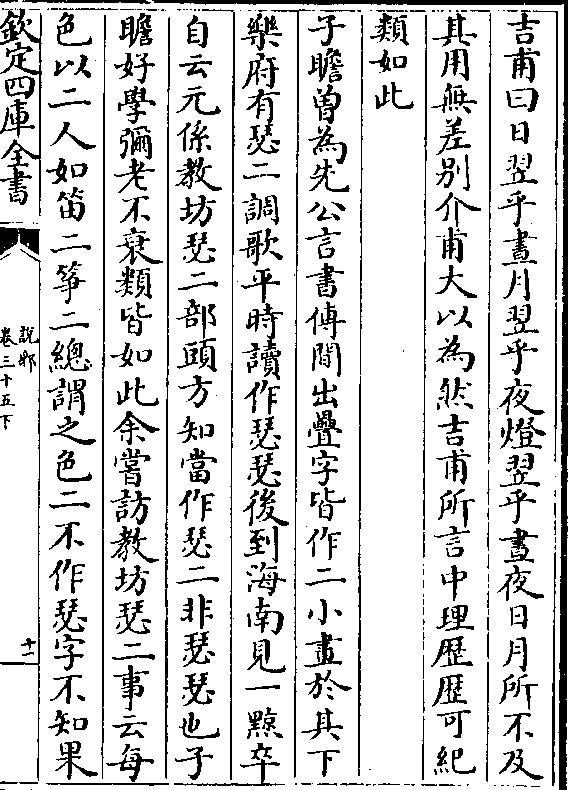 吉甫曰日翌乎晝月翌乎夜燈翌乎晝夜日月所不及
其用無差别介甫大以為然吉甫所言中理歴歴可紀
類如此
子瞻曽為先公言書傳間出疊字皆作二小畫於其下
樂府有瑟二調歌平時讀作瑟瑟後到海南見一黥卒
自云元係教坊瑟二部頭方知當作瑟二非瑟瑟也子
瞻好學彌老不衰類皆如此余嘗訪教坊瑟二事云每
色以二人如笛二箏二總謂之色二不作瑟字不知果
欽定四庫全書
說郛
卷三十五下
十一